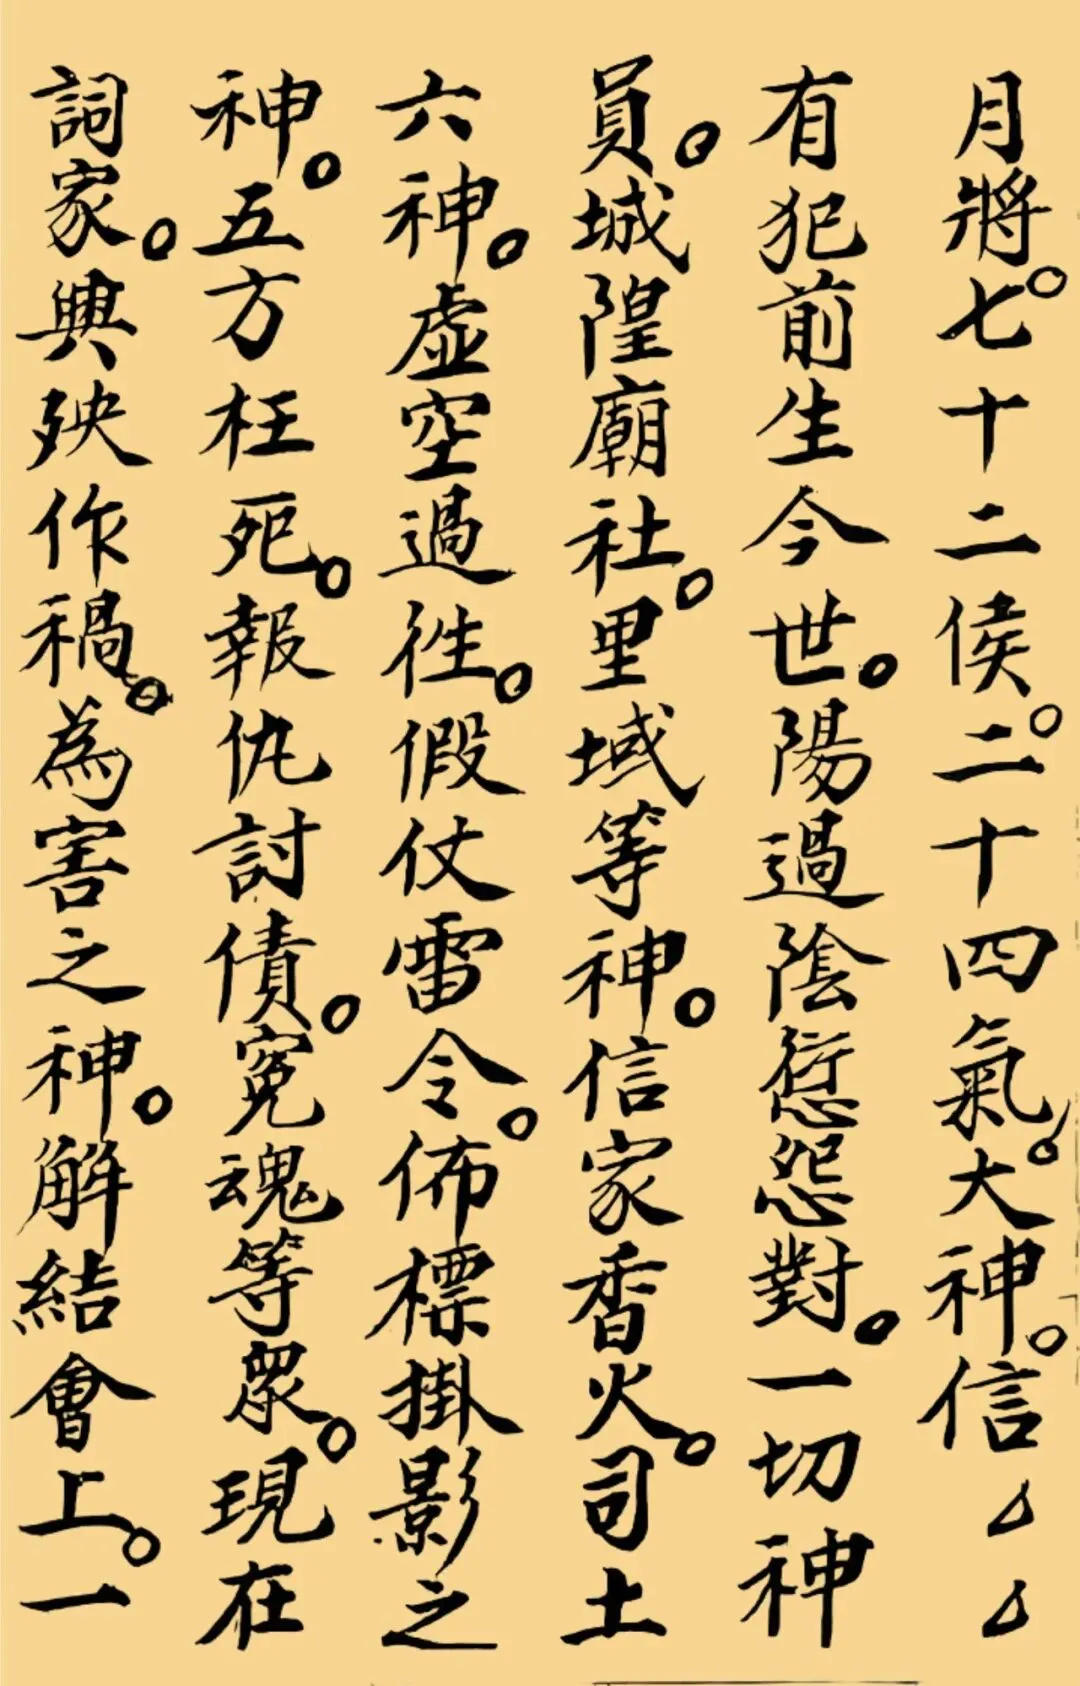 月將。七十二侯。二十四氣。大神。信厶厶
有犯前生今世。陽過陰愆怨對。一切神
員。城隍廟社。里域等神。信家香火。司土
六神。虛空過徃。假仗雷令。佈標掛影之
神。五方枉死。報仇討債。冤魂等眾。現在
詞家。興殃作禍。為害之神。解結會上。一